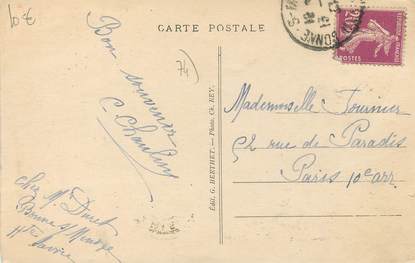 10€
CARTE POSTALE
74
BONNE-S
POSTES
Bon souvenir
Edit. G. BERTHET. — Photo. Ch. REY.
Mademoiselle Fournier
52 rue de Paradis
Paris 10e arr
chez Mr Duret
Bonne s/ Menoge
Hte Savoie